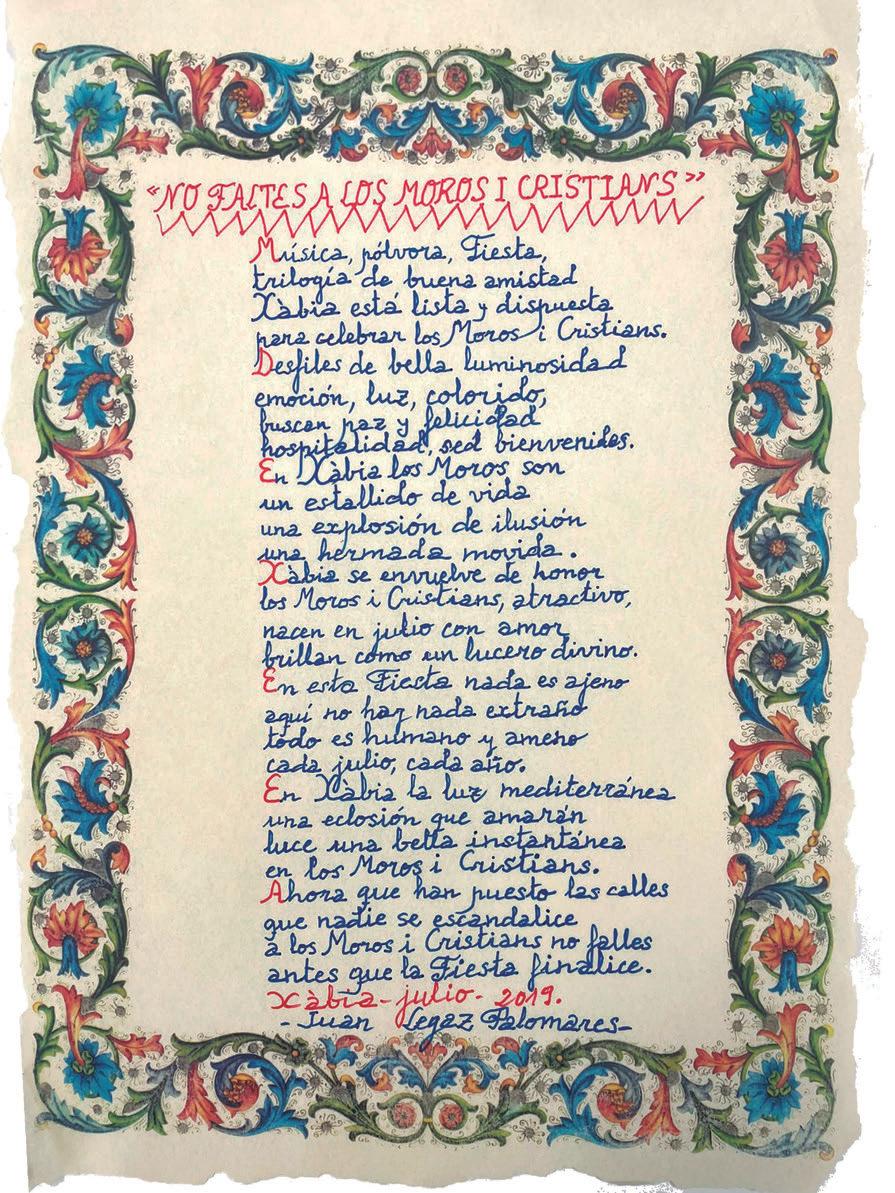 “NO FALTES A LOS MOROS I CRISTIANS”
Música, pólvora, Fiesta,
trilogía de buena amistad
Xàbia está lista y dispuesta
para celebrar los Moros i Cristians.
Desfiles de bella luminosidad
emoción, luz, colorido,
buscan paz y felicidad
hospitalidad, sed bienvenidos.
En Xàbia los Moros son
un estallido de vida
una explosión de ilusión
una hermada movida.
Xàbia se envuelve de honor
los Moros i Cristians, atractivo,
nacen en julio con amor
brillan como un lucero divino.
En esta Fiesta nada es ajeno
aquí no hay nada extraño
todo es humano y ameno
cada julio, cada año.
En Xàbia la luz mediterránea
una eclosión que amarán
luce una bella instantánea
en los Moros i Cristians.
Ahora que han puesto las calles
que nadie se escandalice
a los Moros i Cristians no falles
antes que la Fiesta finalice.
Xàbia - julio - 2019.
- Juan Legaz Palomares -